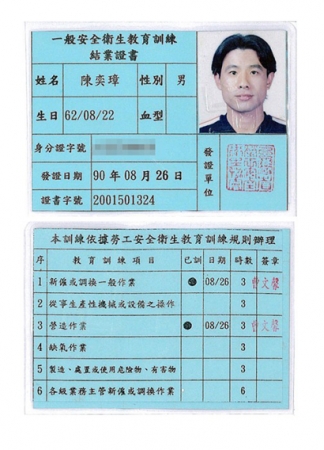 一般安全衛生教育訓練
結業證書
姓名 陳奕璋 性別 男
生日 62/08/22 血型
身分證字號
發證日期 90 年 08 月 26 日
證書字號 2001501324
發證單位
本訓練依據勞工安全衛生教育訓練規則辦理
序 教育訓練項目 已訓 日期 時數 簽章
1 新僱或調換一般作業 08/26 3 曹文馨
2 從事生產性機械或設備之操作 3
3 營造作業 08/26 3 曹文馨
4 缺氧作業 3
5 製造、處置或使用危險物、有害物 3
6 各級業務主管新僱或調換作業 6